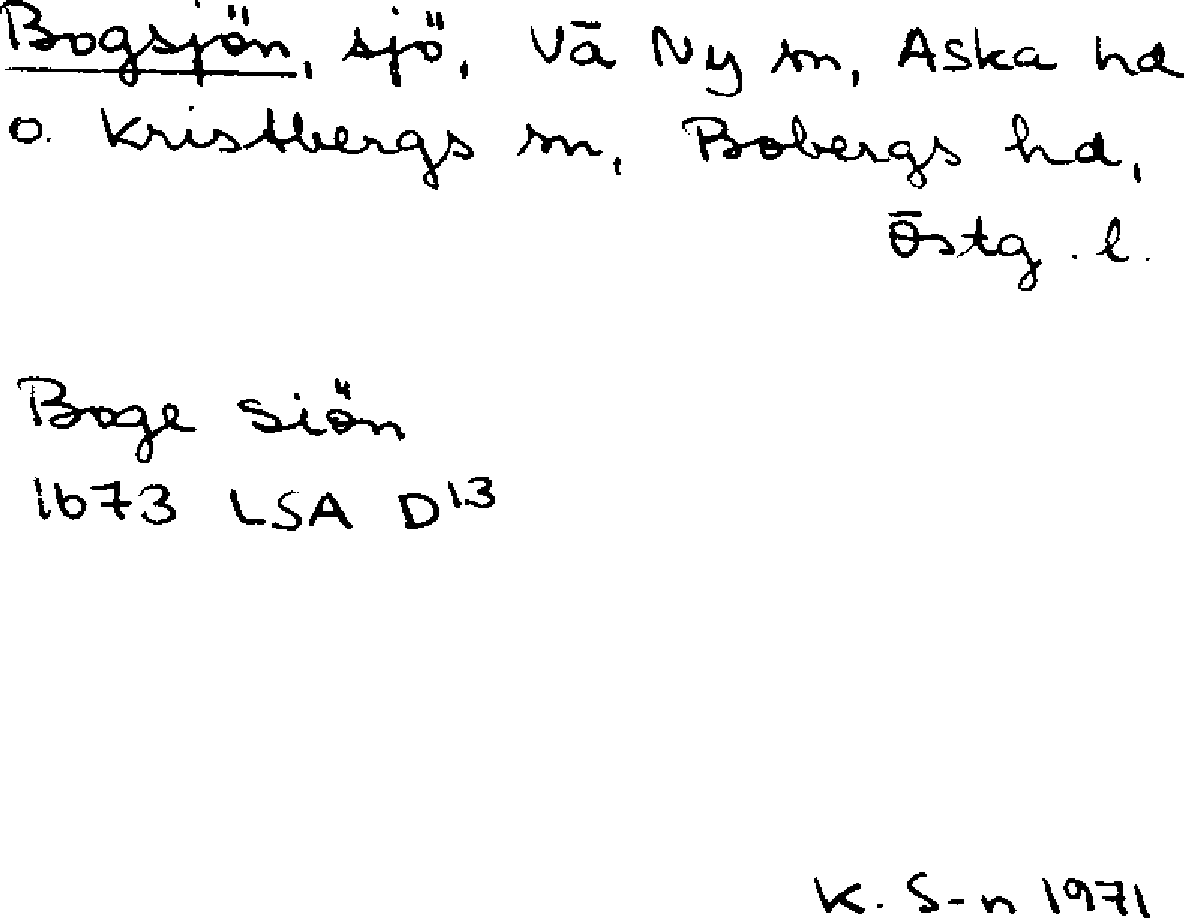 Bogsjön, sjö, Vä Ny sn, Aska hd
o. Kristbergs sn, Bobergs hd,
Östg. l.
Boge Siön
1673 LSA D13
K. S-n 1971